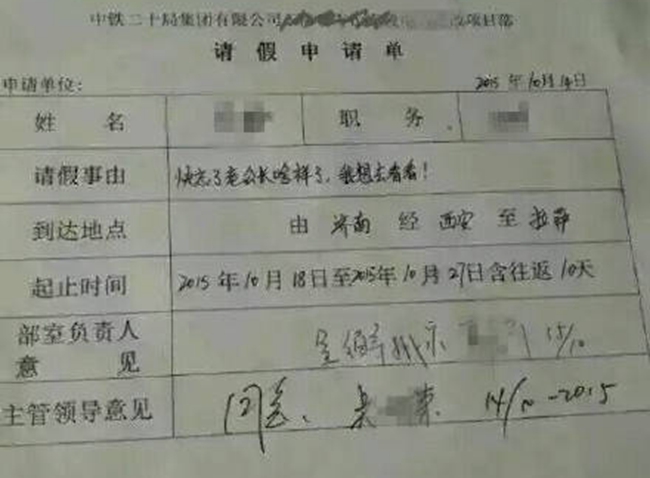 中铁二十局集团有限公司 改项目部
请假申请单
申请单位: 2015年10月14日
姓名 职务
请假事由 快忘了老公长啥样了,我想去看看!
到达地点 由 济南 经 西安 至 拉萨
起止时间 2015年10月18日至2015年10月27日含往返10天
部室负责人
意见 呈 批示 15/10
主管领导意见 同意、 14/10-2015